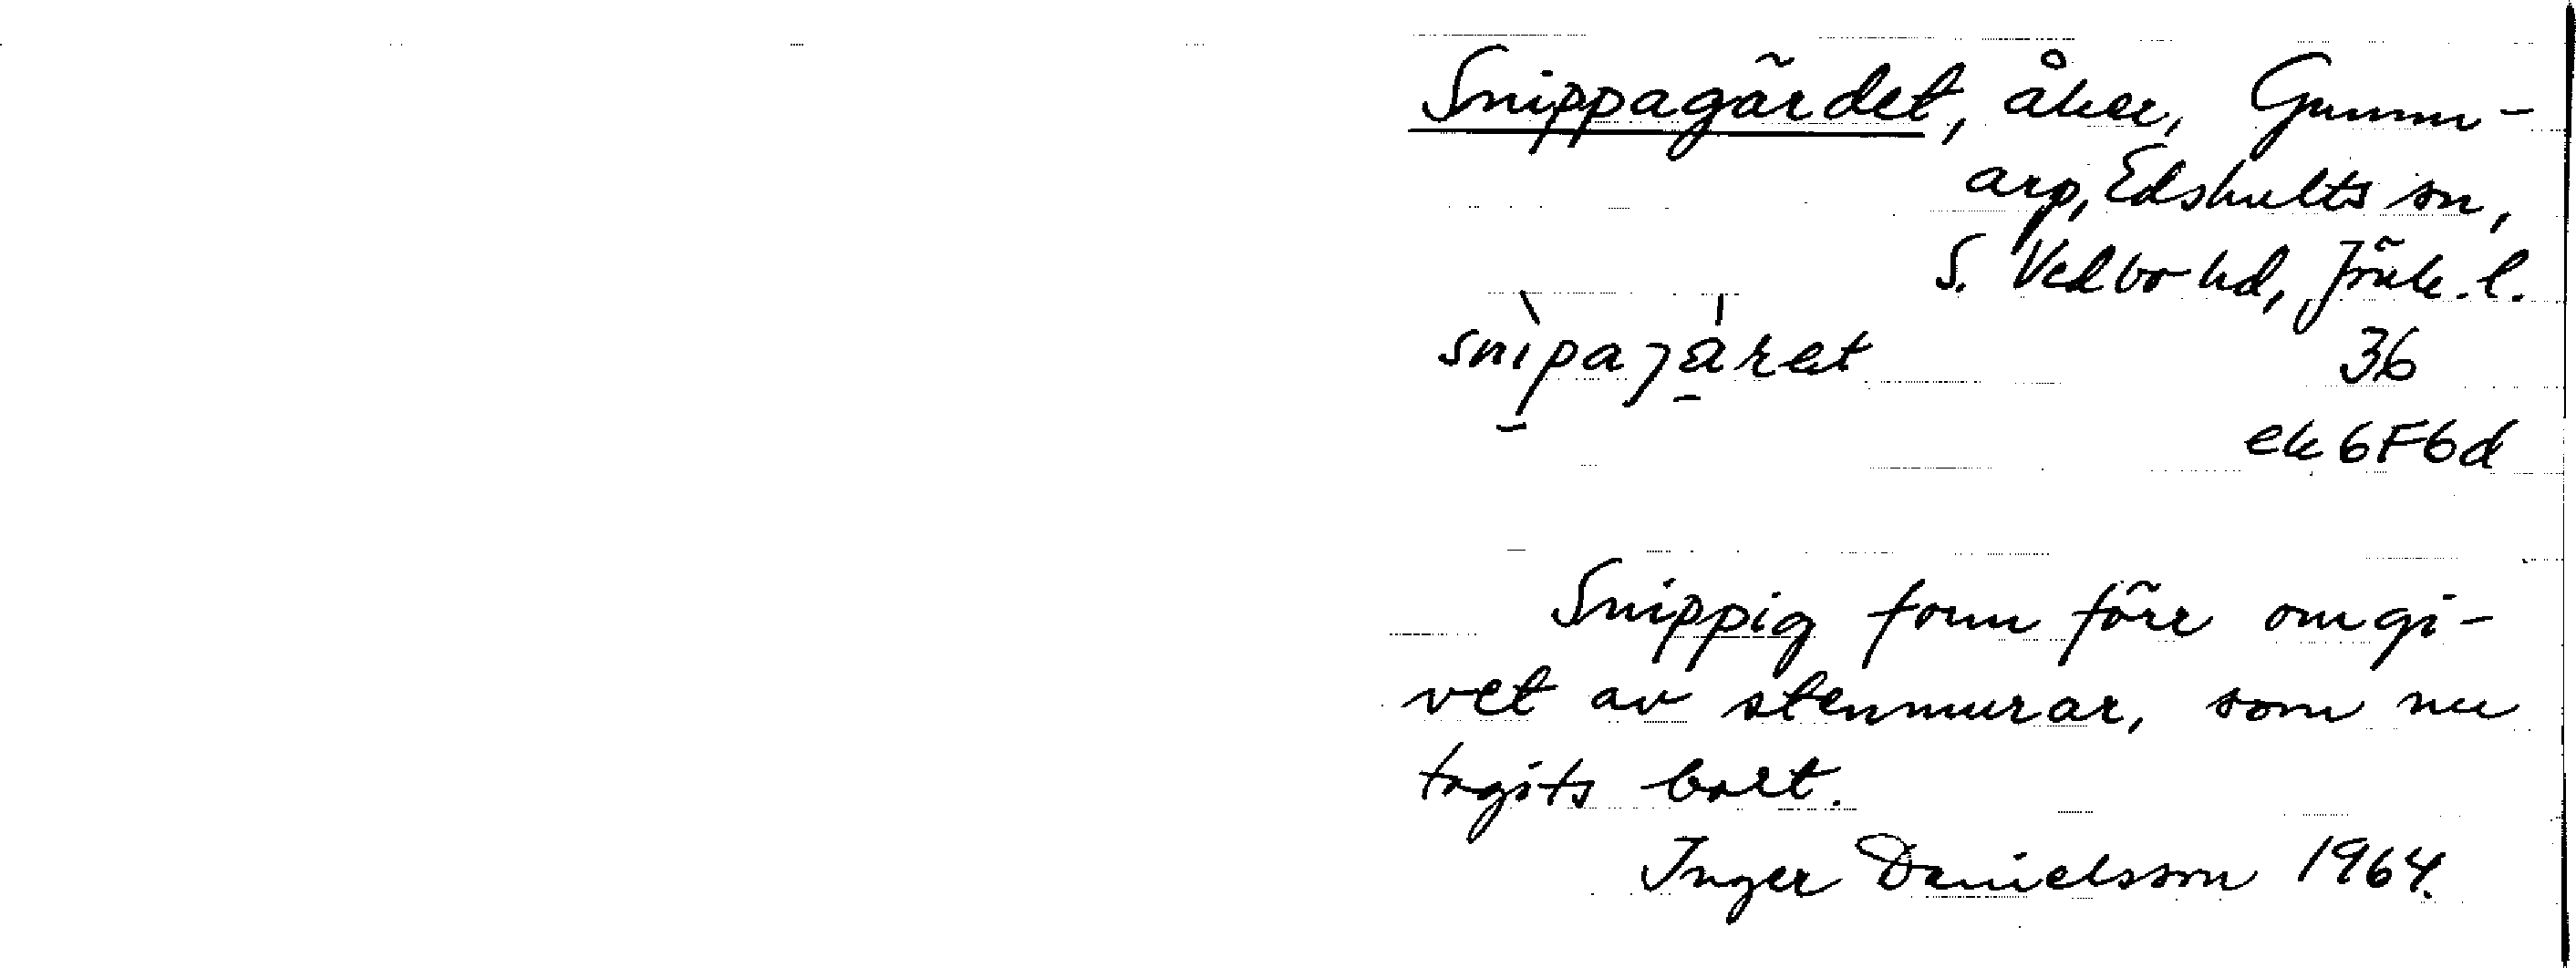 Snippagärdet, åker, Gumm-
arp, Edshults sn,
S. Vedbo hd, Jönk. l.
snìpajäret 36
ek 6F6d
Snippig form förr omgi-
vet av stenmurar, som nu
tagits bort.
Inger Danielsson 1964.